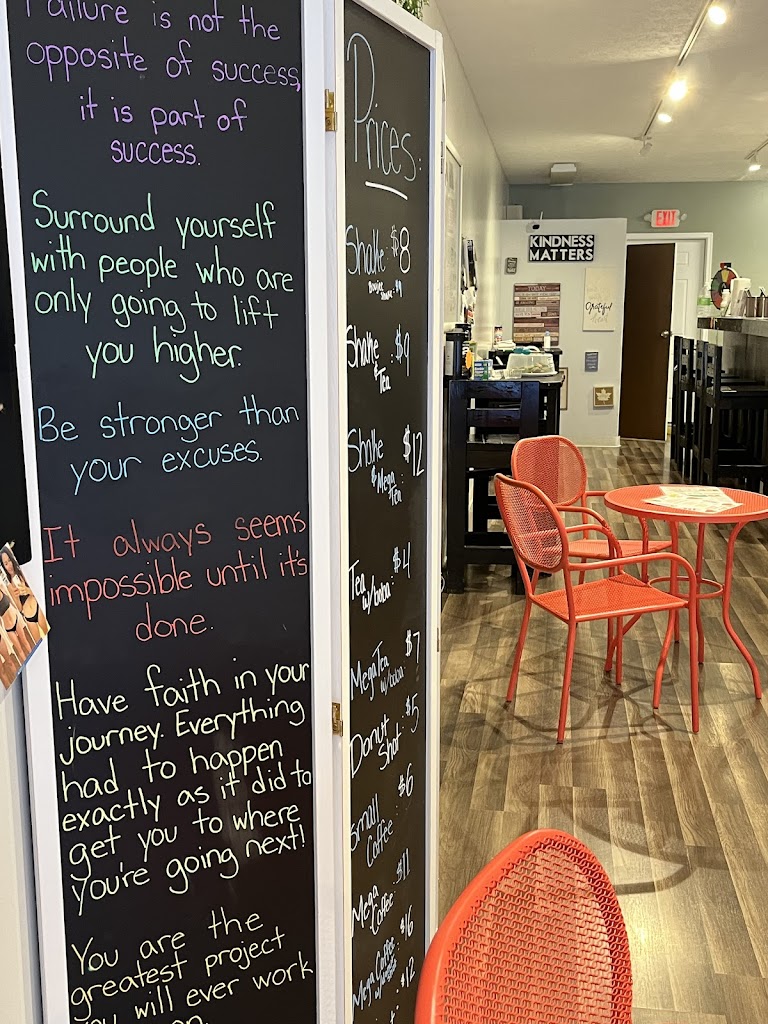 Failure is not the
opposite of success,
it is part of
success.
Surround yourself
with people who are
only going to lift
you higher.
Be stronger than
your excuses.
It always seems
impossible until it's
done.
Have faith in your
journey. Everything
had to happen
exactly as it did to
get you to where
you're going next!
You are the
greatest project
you will ever work
on.
Prices:
Shake: $8
Shake $9
& Tea
Shake $12
& Mega
Tea
Tea $4
w/boba:
Mega Tea $7
w/boba:
Donut $5
Shot:
Small $6
Coffee:
Mega $11
Coffee:
Mega Coffee $16
$12
KINDNESS
MATTERS
EXIT
TODAY
Grateful